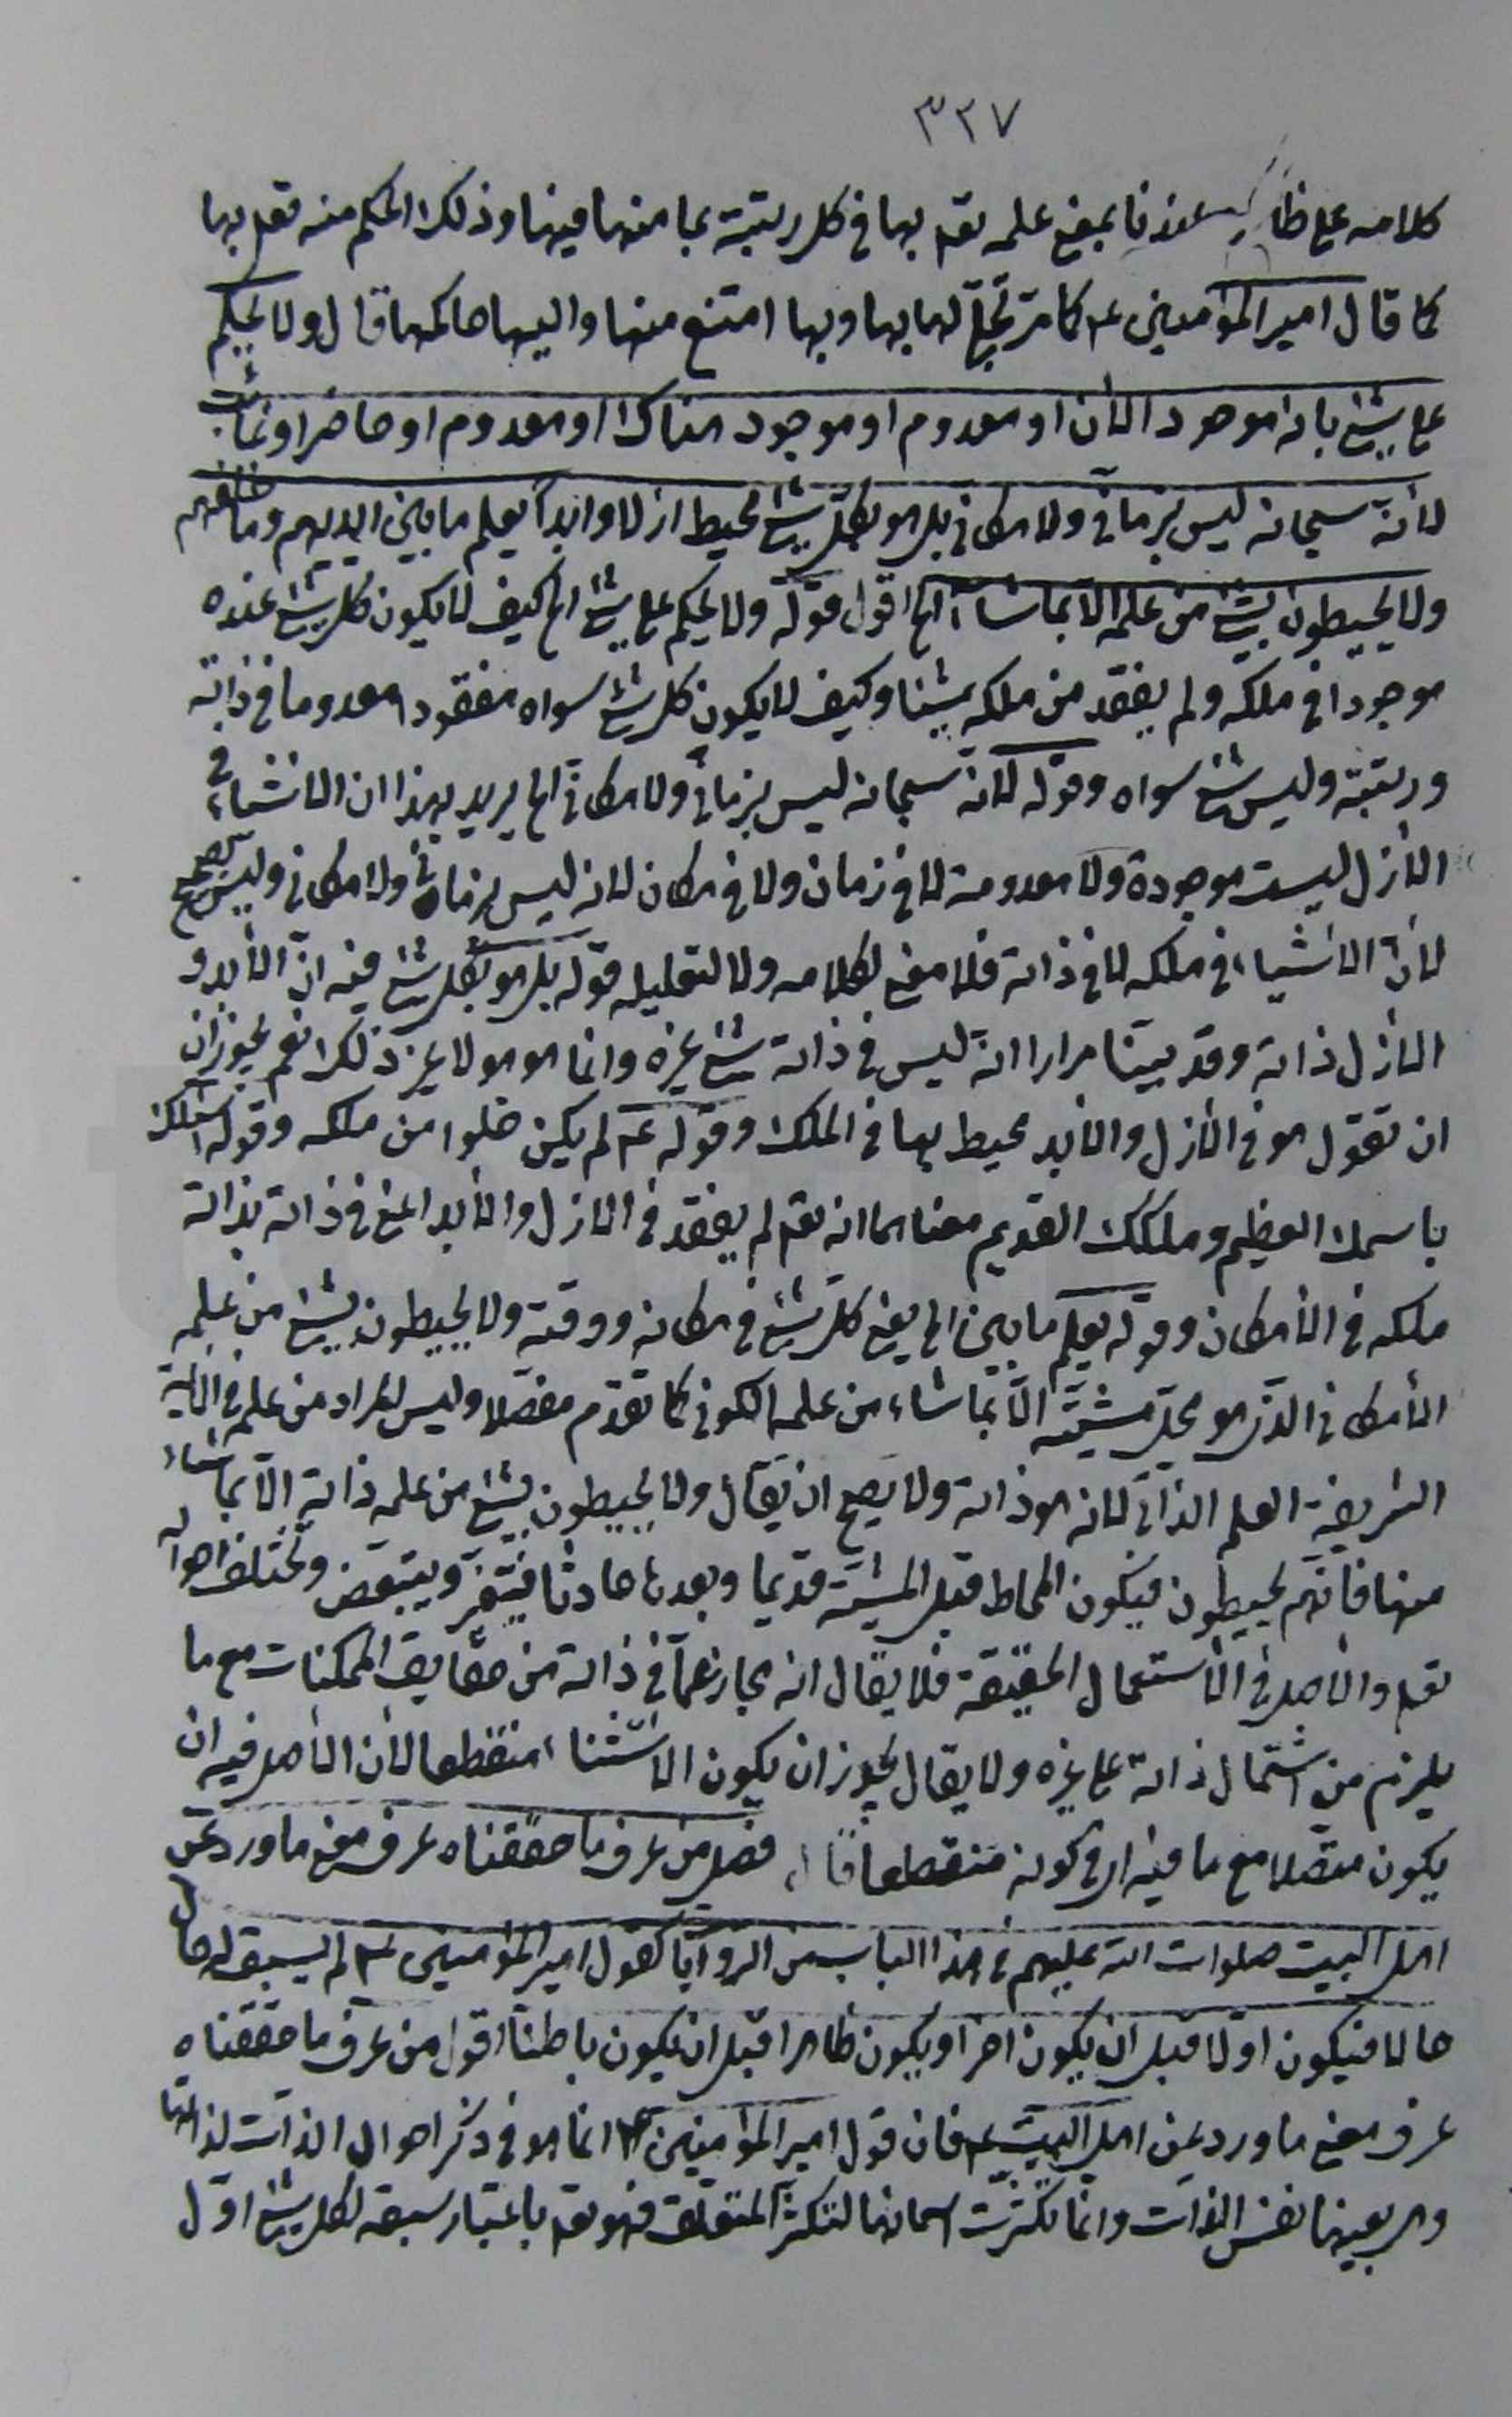 ٣٢٧
كلامه على ظاهره عندنا بمعنى علمه تعم بها في كل رتبة بما منها فيها وذلك الحكم منه تعم بها
كما قال امير المؤمنين عم كما مر تجلّى لها بها وبها امتنع منها واليها حاكمها قال ولا يحكم
على شئ بانه موجود الأن او معدوم او موجود هناك او معدوم او حاضر او غائب
لأنه سبحانه ليس بزماني ولا مكاني بل هو بكل شئ محيط ازلا وابدا يعلم ما بين ايديهم وما خلفهم
ولا يحيطون بشئ من علمه الا بما شاء الخ اقول قوله ولا يحكم على شئ الخ كيف لا يكون كل شئ عنده
موجودا في ملكه ولم يفقد من ملكه شيئا وكيف لا يكون كل شئ سواه مفقودا معدوما في ذاته
ورتبته وليس شئ سواه وقوله لانه سبحانه ليس بزماني ولا مكاني الخ يريد بهذا ان الاشياء في
الأزل ليست موجودة ولا معدومة لا في زمان ولا في مكان لانه ليس بزماني ولا مكاني وليس بصحيح
لأن الأشياء في ملكه لا في ذاته فلا معنى لكلامه ولا لتعليله قوله بل هو بكل شئ فيه ان الأبد و
الأزل ذاته وقد بينا مرارا انه ليس في ذاته شئ غيره وانما هو هو لا غير ذلك نعم يجوز ان
ان تقول هو في الأزل والأبد محيط بها في الملك وقوله عم لم يكن خلوا من ملكه وقوله اسئلك
باسمك العظيم وملكك القديم معناهما انه تعم لم يفقد في الازل والأبد اعنى في ذاته بذاته
ملكه في الأمكان وقوله يعلم ما بين الخ يعنى كل شئ في مكانه ووقته ولا يحيطون بشئ من علمه
الأمكاني الذي هو محل مشيته الا بما شاء من علمه الكوني كما تقدم مفصلا وليس المراد من علمه في الآية
الشريفة العلم الذاتي لانه هو ذاته ولا يصح ان يقال ولا يحيطون بشئ من علمه ذاته الا بما شاء
منها فانهم يحيطون فيكون المحاط قبل المشية قديما وبعدها حادثا فيتغير ويتبعض وتختلف احواله
تعم والأصل في الأستعمال الحقيقة فلا يقال انه مجاز عما في ذاته من حقايق الممكنات مع ما
يلزم من اشتمال ذاته على غيره ولا يقال يجوز ان يكون الاستثناء منقطعا لأن الأصل فيه ان
يكون متصلا مع ما فيه اي في كونه منقطعا قال فصل من عرف ما حققناه عرف معنى ما ورد عن
اهل البيت صلوات الله عليهم في هذا الباب من الروايات كقول امير المؤمنين عم لم يسبق له حال
حالا فيكون اولا قبل ان يكون اخرا ويكون ظاهرا قبل ان يكون باطنا اقول من عرف ما حققناه
عرف معنى ما ورد عن اهل البيت عم فان قول امير المؤمنين عم انما هو في ذكر احوال الذات لذاتها
وهي بعينها نفس الذات وانما تكثرت اسمائها لتكثر المتعلق فهو تعم باعتبار سبقه لكل شئ اول